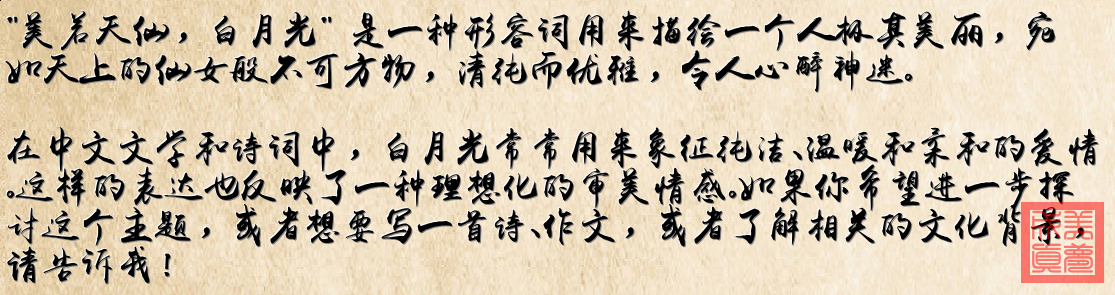 "美若天仙，白月光"是一种形容词用来描绘一个人极其美丽，宛
如天上的仙女般不可方物，清纯而优雅，令人心醉神迷。
在中文文学和诗词中，白月光常常用来象征纯洁、温暖和亲和的爱情
。这样的表达也反映了一种理想化的审美情感。如果你希望进一步探
讨这个主题，或者想要写一首诗、作文，或者了解相关的文化背景，
请告诉我！
美梦成真